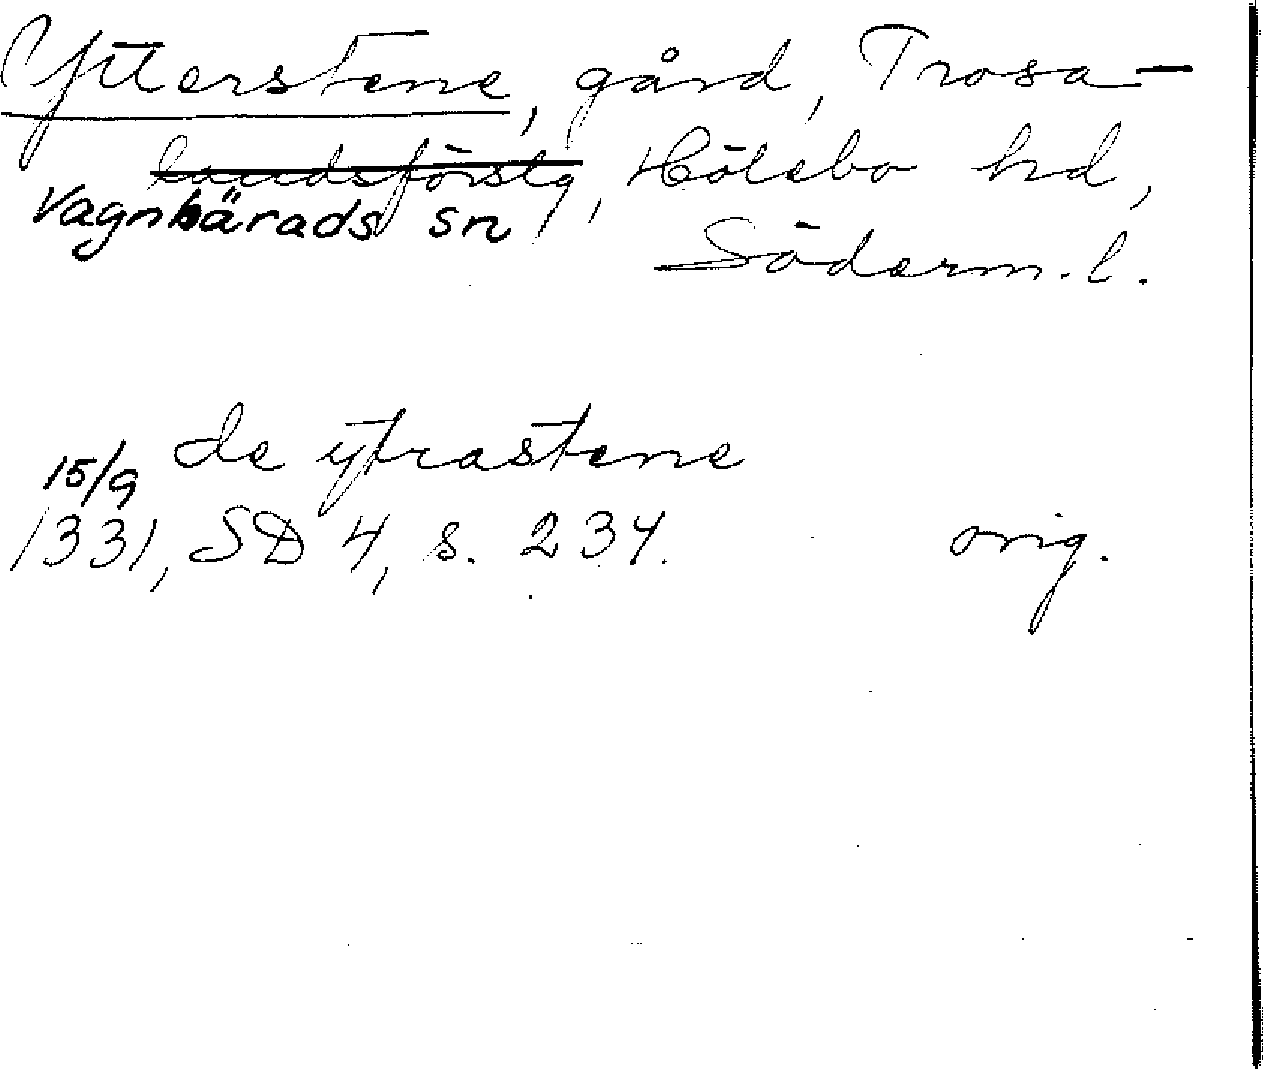 Ytterstene, gård, Trosa-
landsförslg, Hölebo hd,
Vagnhärads sn
Söderm. l.
de ytrastene
15/9
1331, SD 4, s. 234. orig.